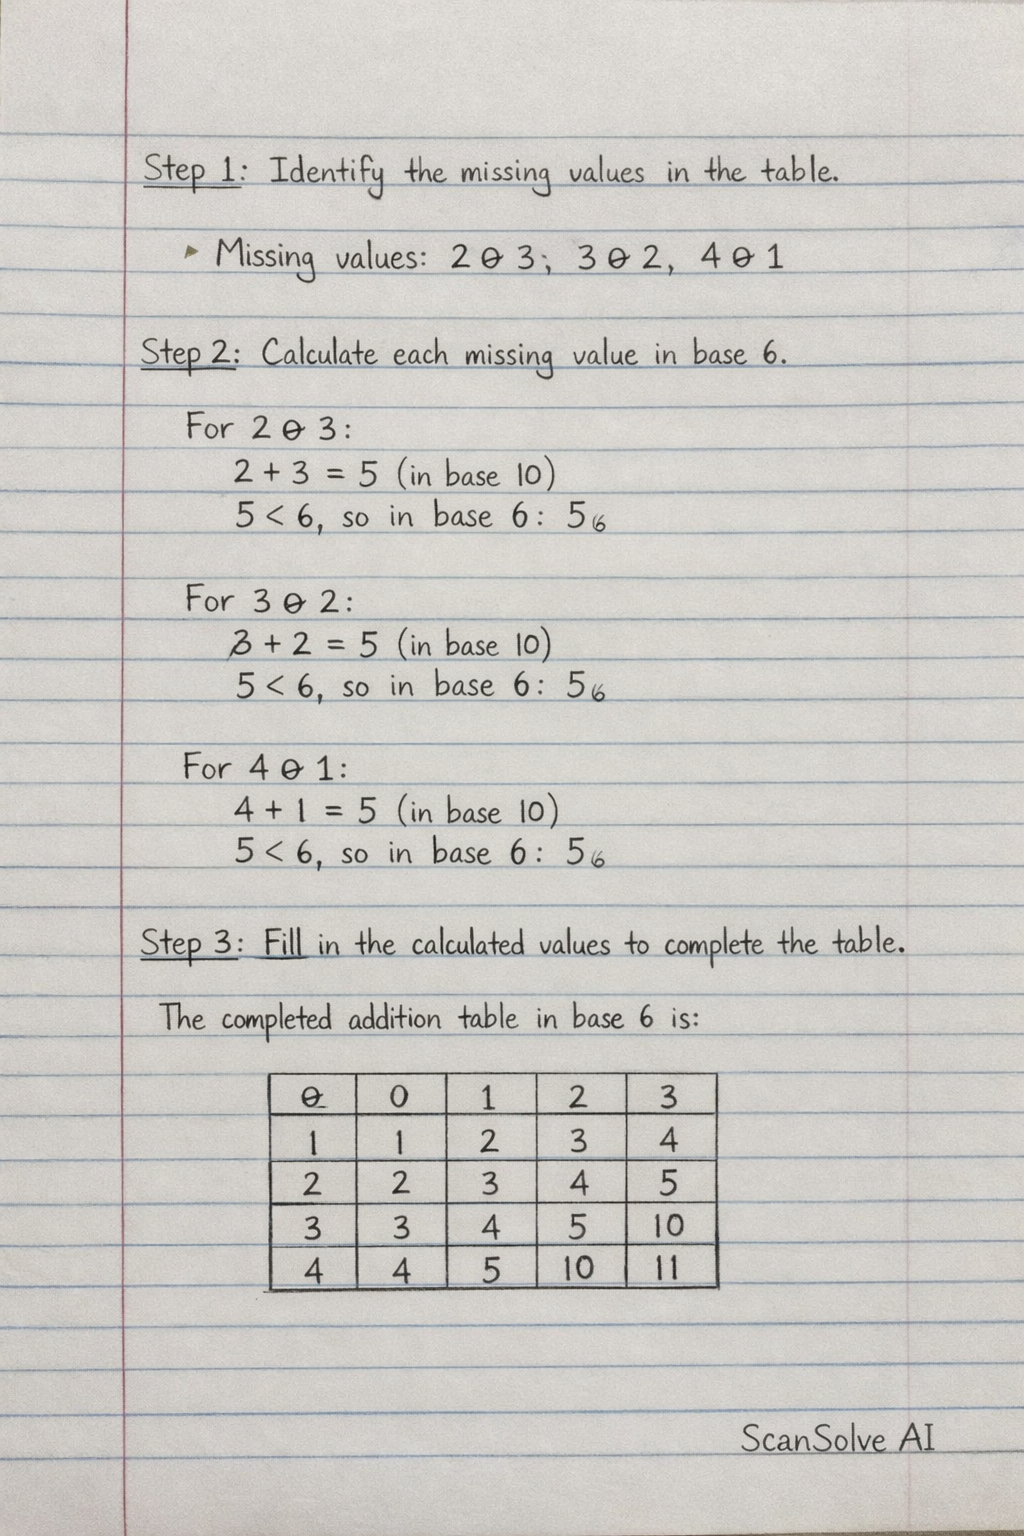 Step 1: Identify the missing values in the table.
▸ Missing values: 2 ⊖ 3; 3 ⊖ 2, 4 ⊖ 1
Step 2: Calculate each missing value in base 6.
For 2 ⊖ 3:
2 + 3 = 5 (in base 10)
5 < 6, so in base 6: 5₆
For 3 ⊖ 2:
3 + 2 = 5 (in base 10)
5 < 6, so in base 6: 5₆
For 4 ⊖ 1:
4 + 1 = 5 (in base 10)
5 < 6, so in base 6: 5₆
Step 3: Fill in the calculated values to complete the table.
The completed addition table in base 6 is:
⊖ 0 1 2 3
1 1 2 3 4
2 2 3 4 5
3 3 4 5 10
4 4 5 10 11
ScanSolve AI